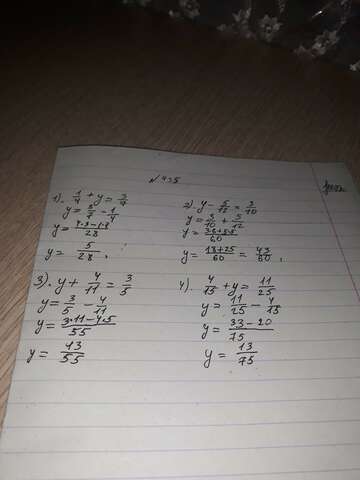 №435
1). 1/4 + y = 3/7
y = 3/7 - 1/4
y = (4·3-1·7)/28
y = 5/28 .
2) y - 5/12 = 3/10
y = 3/10 + 5/12
y = (3·6+5·5)/60
y = (18+25)/60 = 43/60 .
3). y + 4/11 = 3/5
y = 3/5 - 4/11
y = (3·11-4·5)/55
y = 13/55
4). 4/15 + y = 11/25
y = 11/25 - 4/15
y = (33-20)/75
y = 13/75